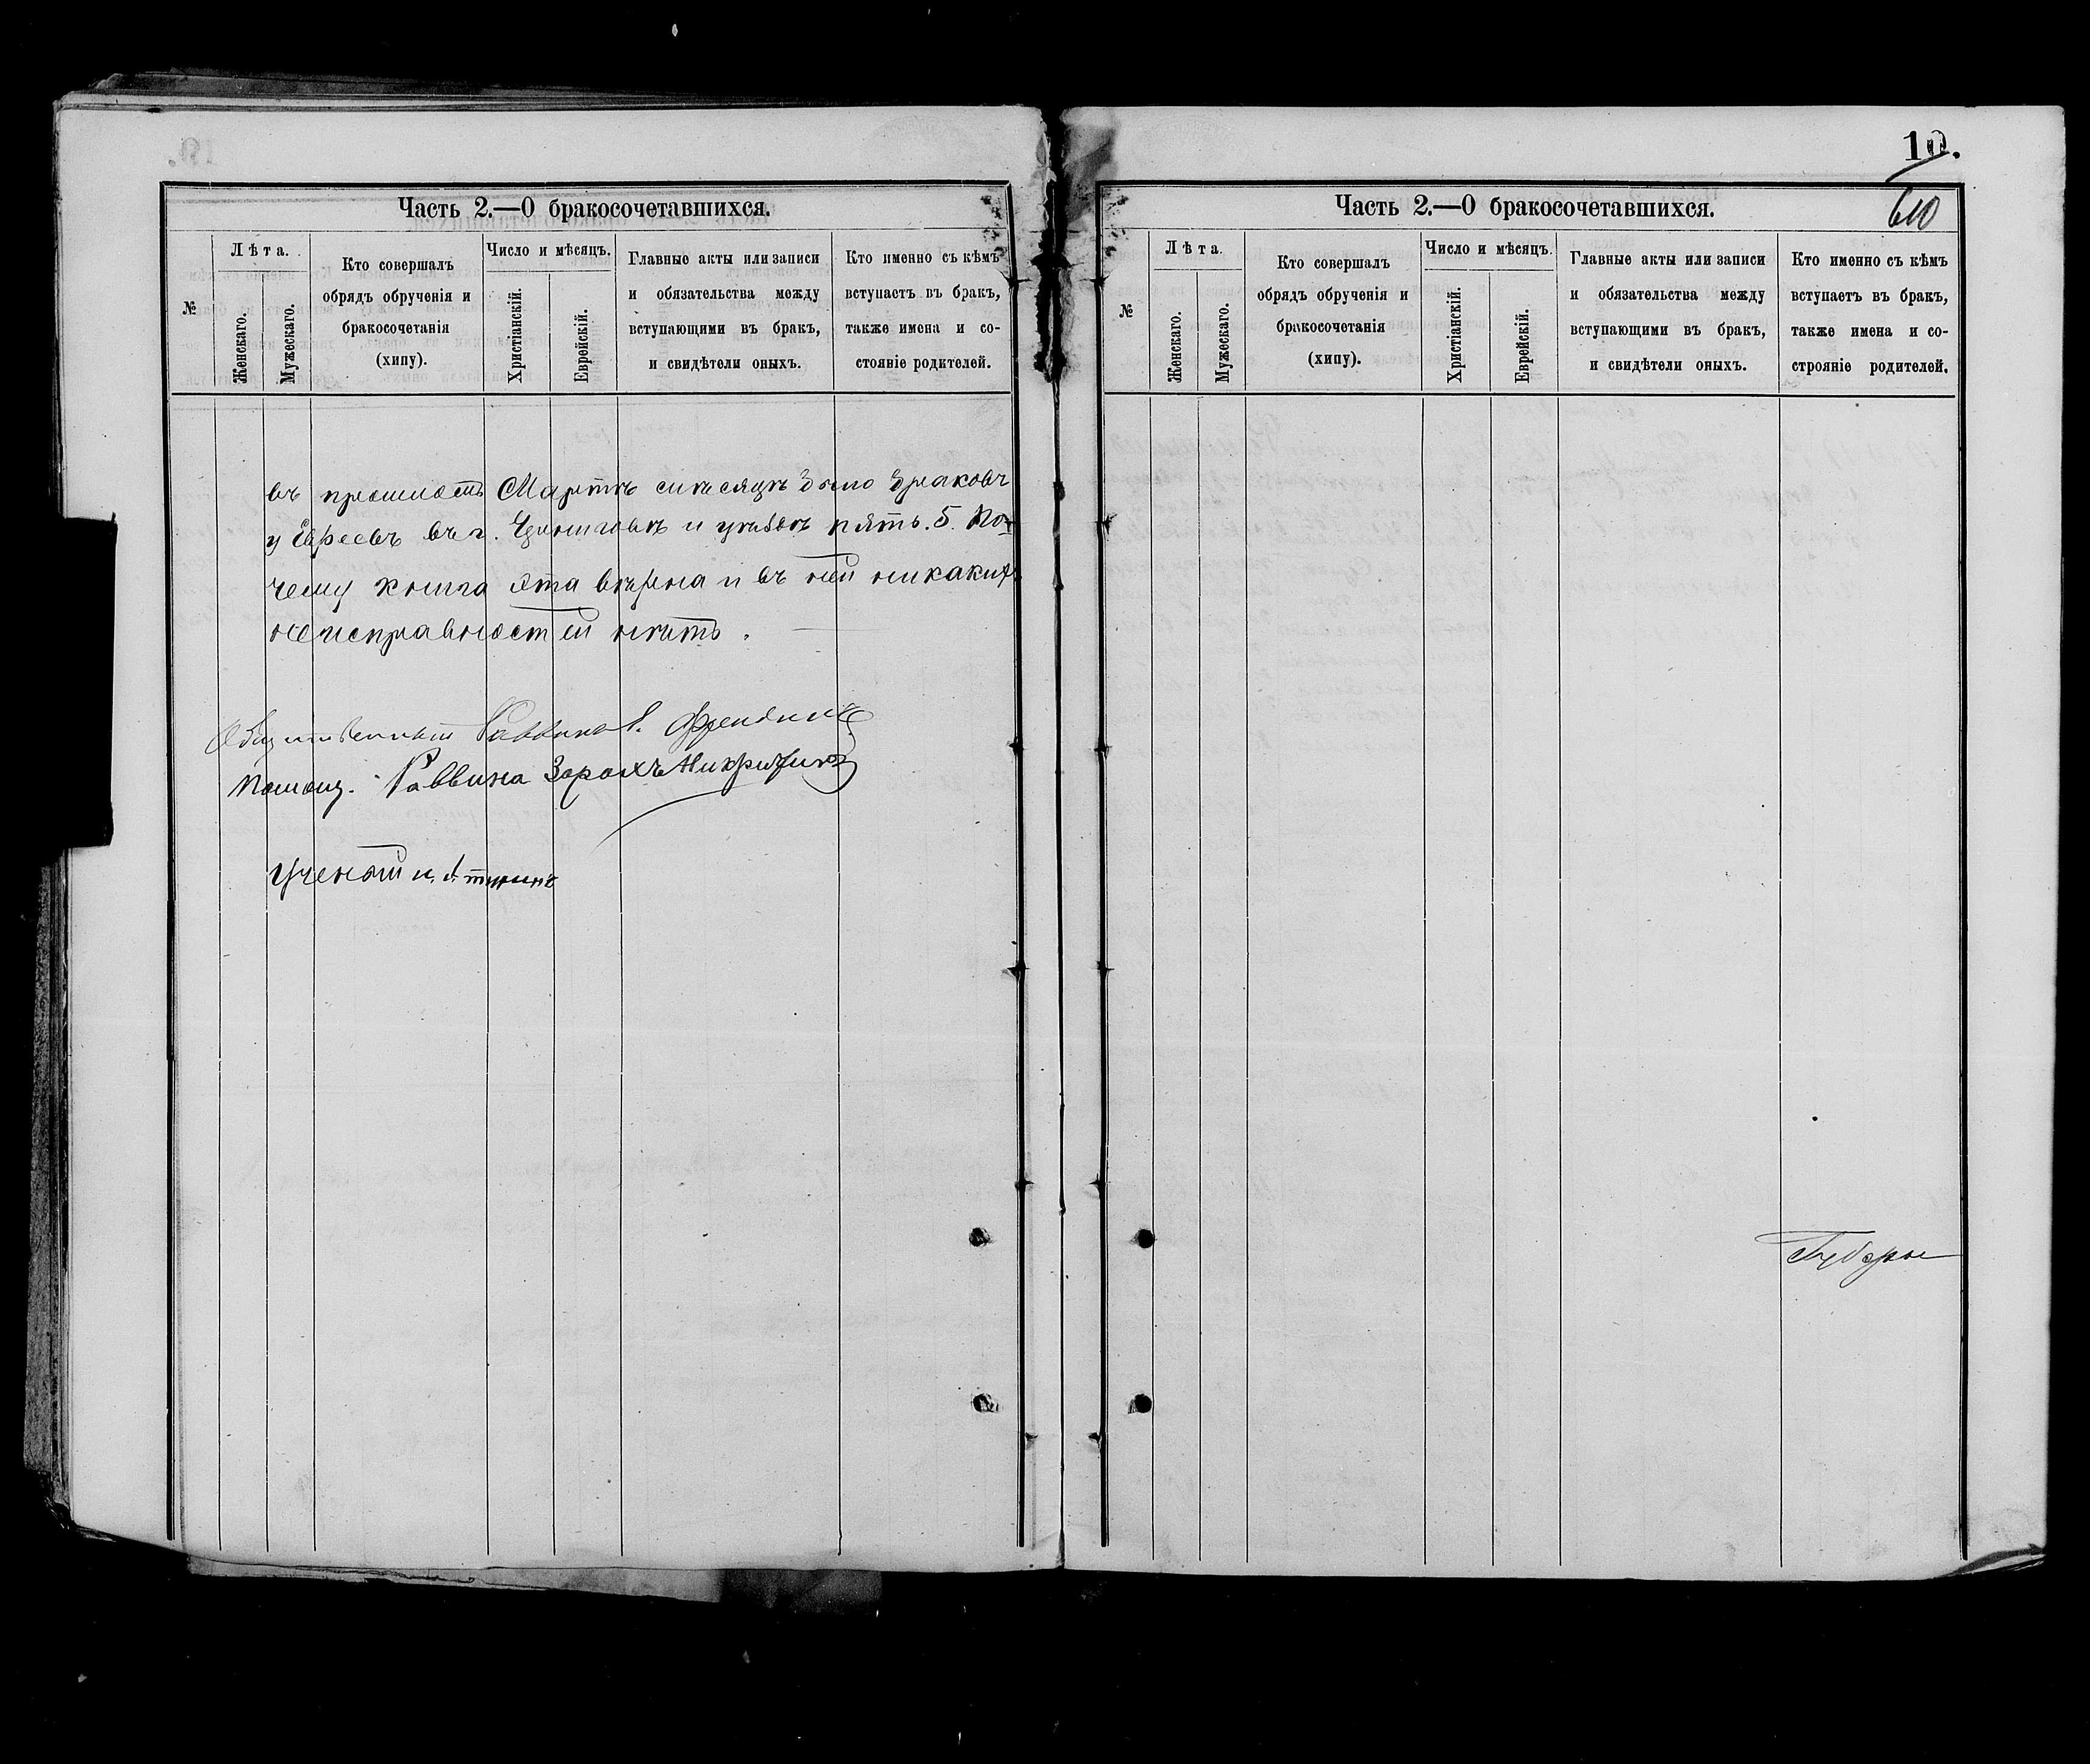 Часть 2.—О бракосочетавшихся.
№
Лѣта.
Женскаго.
Мужескаго.
Кто совершалъ
обрядъ обрученія и
бракосочетанія
(хипу).
Число и мѣсяцъ.
Христіанскій.
Еврейскій.
Главные акты или записи
и обязательства между
вступающими въ бракъ,
и свидѣтели оныхъ.
Кто именно съ кѣмъ
вступаетъ въ бракъ,
также имена и со-
стояніе родителей.
въ прошломъ Мартѣ мѣсяцѣ было браковъ
у Евреевъ въ г. Черниговѣ и уѣздѣ пять. 5. По-
чему книга эта вѣрна и въ ней никакихъ
неисправностей нѣтъ.
Общественный Раввинъ
Помощ. Раввина Зорохъ
Ученый
10.
610
Часть 2.—О бракосочетавшихся.
№
Лѣта.
Женскаго.
Мужескаго.
Кто совершалъ
обрядъ обрученія и
бракосочетанія
(хипу).
Число и мѣсяцъ.
Христіанскій.
Еврейскій.
Главные акты или записи
и обязательства между
вступающими въ бракъ,
и свидѣтели оныхъ.
Кто именно съ кѣмъ
вступаетъ въ бракъ,
также имена и со-
строяніе родителей.